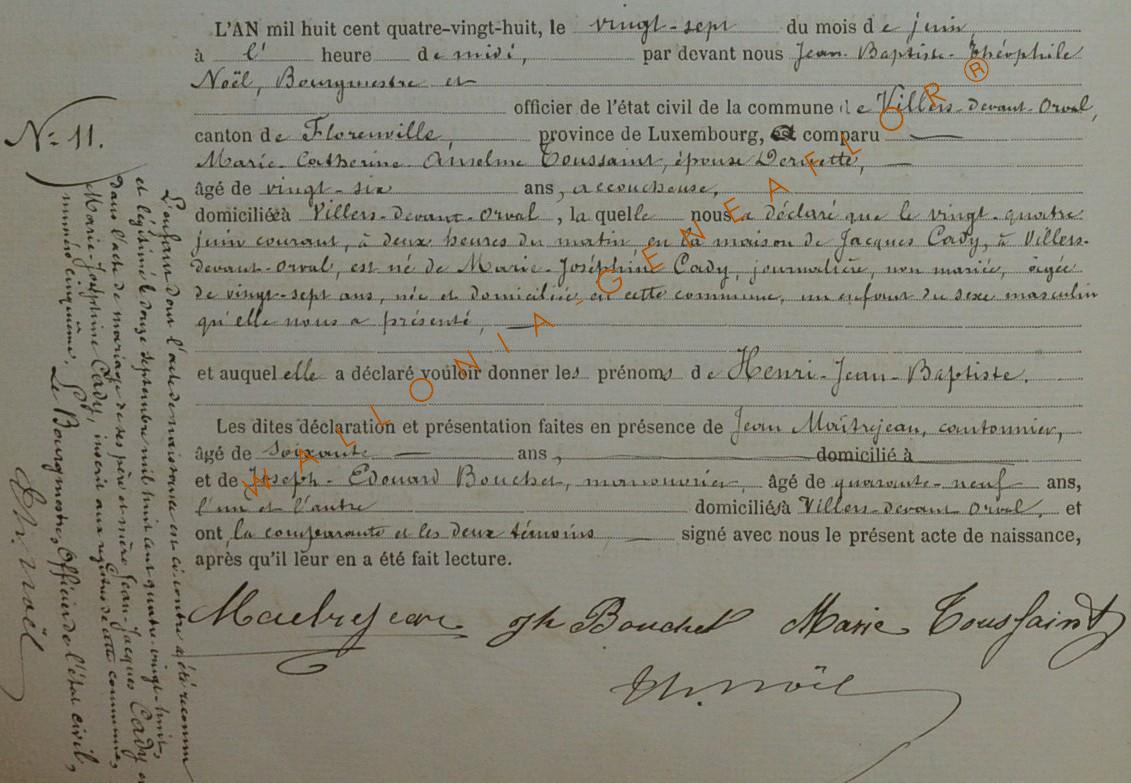 L'AN mil huit cent quatre-vingt-huit, le vingt-sept du mois de juin,
à l' heure de midi, par devant nous Jean-Baptiste-Théophile
Noël, Bourgmestre et
officier de l'état civil de la commune de Villers-devant-Orval,
canton de Florenville, province de Luxembourg, est comparu
Marie-Catherine-Anselme Toussaint, épouse
âgé de vingt-six ans, accoucheuse,
domiciliée à Villers-devant-Orval, la quelle nous a déclaré que le vingt-quatre
juin courant, à deux heures du matin en la maison de Jacques Cady, à Villers-
devant-Orval, est né de Marie-Joséphine Cady, journalière, non mariée, âgée
de vingt-sept ans, née et domiciliée en cette commune, un enfant du sexe masculin
qu'elle nous a présenté,
et auquel elle a déclaré vouloir donner les prénoms de Henri-Jean-Baptiste.
Les dites déclaration et présentation faites en présence de Jean Maîtrejean, cantonnier,
âgé de soixante ans, domicilié à
et de Joseph-Edouard Bouchet, manouvrier, âgé de quarante-neuf ans,
l'un et l'autre domiciliés à Villers-devant Orval, et
ont, la comparante et les deux témoins signé avec nous le présent acte de naissance,
après qu'il leur en a été fait lecture.
Maitrejean Jh Bouchet Marie Toussaint
Th. Noël
N° 11.
L'enfant dont l'acte de naissance est ci-contre a été reconnu
et légitimé le douze septembre mil huit cent quatre-vingt-huit,
dans l'acte de mariage de ses père et mère Jean-Jacques Cady et
Marie-Joséphine Cady, inscrit aux registres de cette commune,
numéro cinquième. Le Bourgmestre, Officier de l'état civil,
Th. Noël
WALLONIA-GENEAFLOR ®